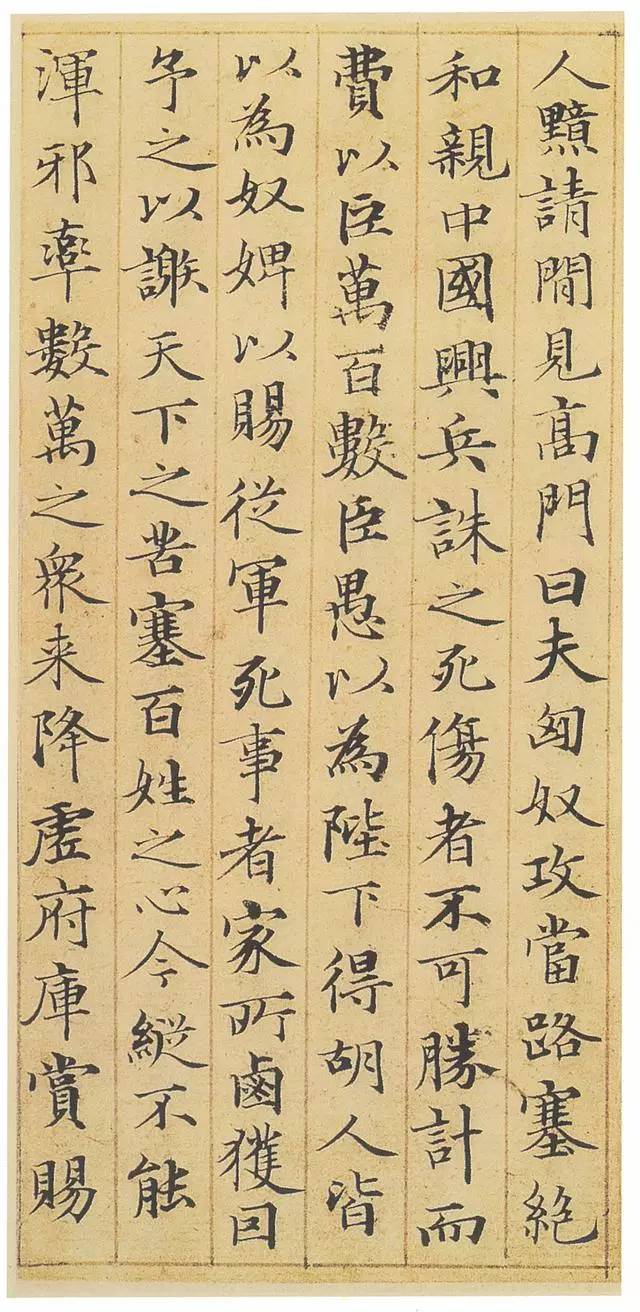 人黯請間見髙門曰夫匈奴攻當路塞絶
和親中國興兵誅之死傷者不可勝計而
費以巨萬百數臣愚以為陛下得胡人皆
以為奴婢以賜從軍死事者家所鹵獲因
予之以謝天下之苦塞百姓之心今縱不能
渾邪率數萬之衆来降虚府庫賞賜